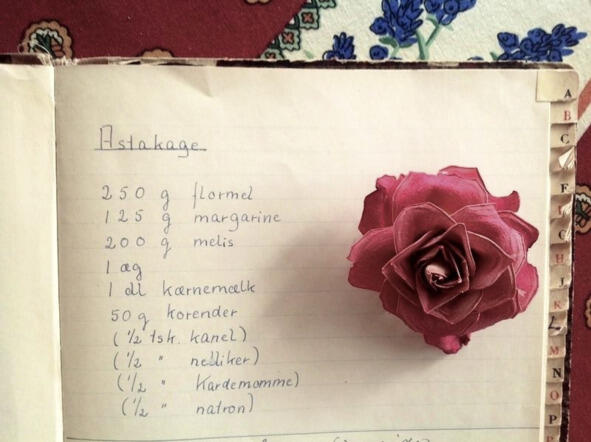 Astakage
250 g flormel
125 g margarine
200 g melis
1 æg
1 dl kærnemælk
50 g korender
(½ tsk. kanel)
(½ " nelliker)
(½ " Kardemomme)
(½ " natron)
A
B
C
E
H
K
L
M
N
O
P